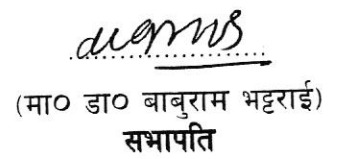 (मा० डा० बाबुराम भट्टराई)
सभापति